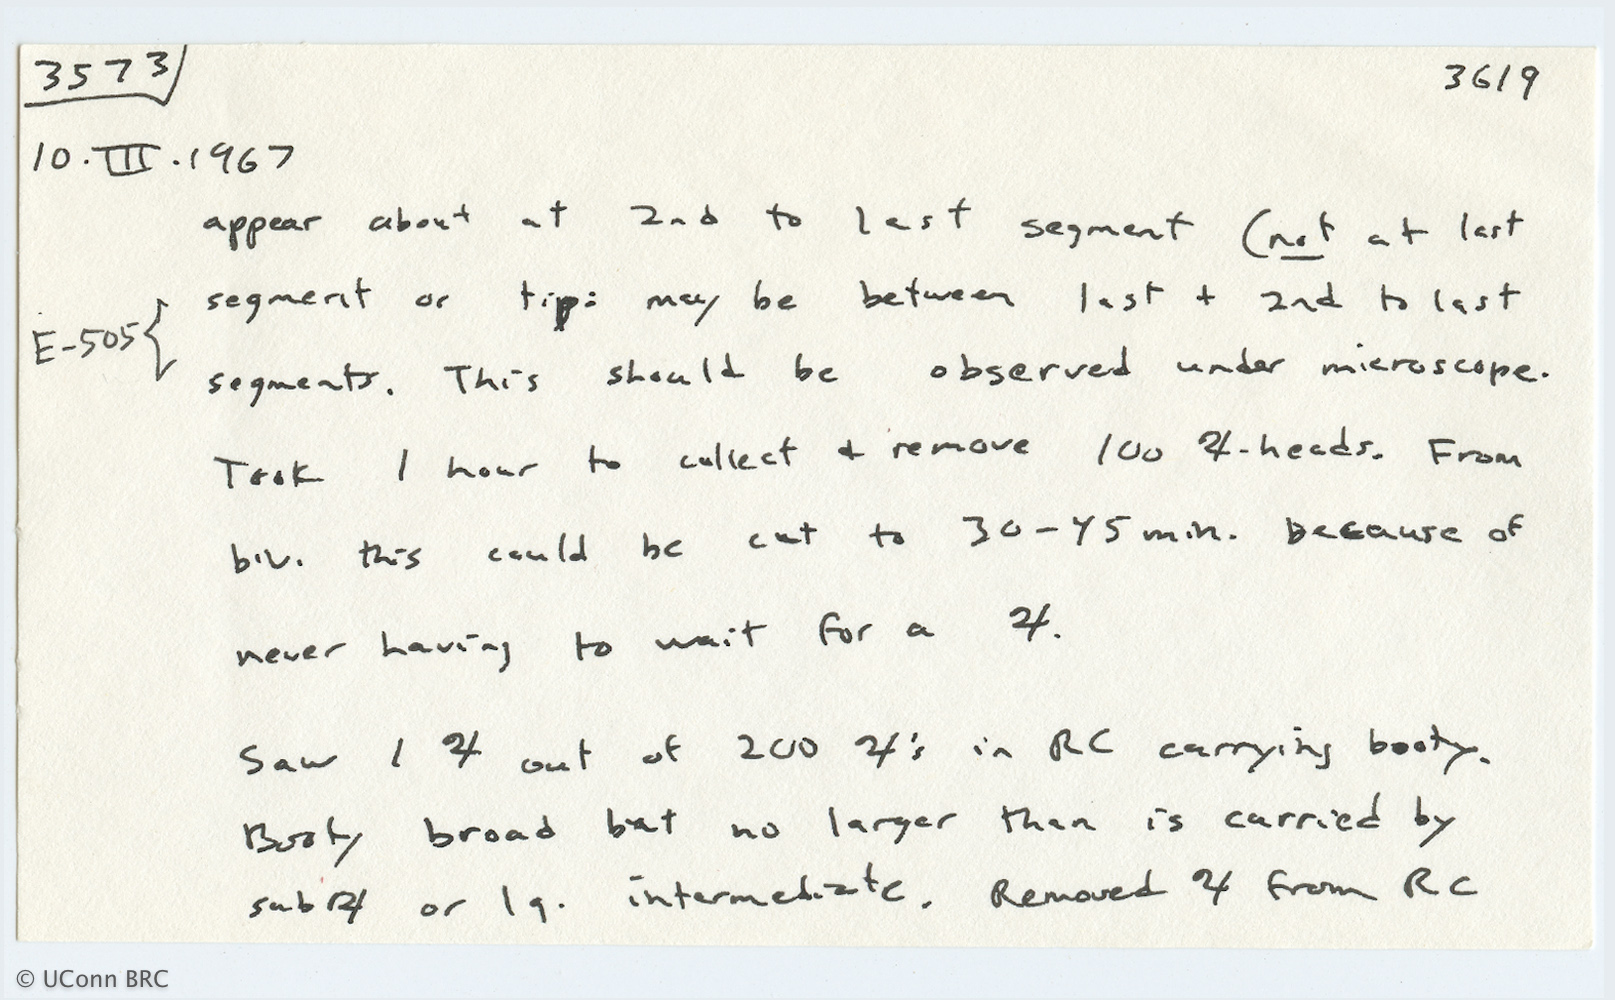 3573
3619
10.III.1967
appear about at 2nd to last segment (not at last
segment or tip: may be between last + 2nd to last
E-505 {
segments. This should be observed under microscope.
Took 1 hour to collect + remove 100 ♃-heads. From
biv. this could be cut to 30-45 min. because of
never having to wait for a ♃.
Saw 1 ♃ out of 200 ♃'s in RC carrying booty.
Booty broad but no larger than is carried by
sub♃ or lg. intermediate. Removed ♃ from RC
© UConn BRC